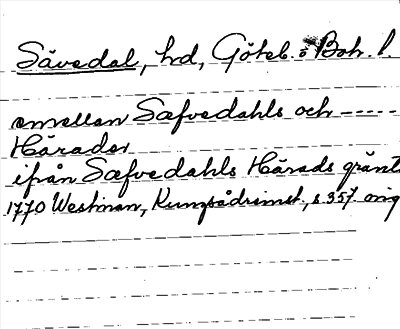 Sävedal, hd, Göteb. o Boh. l.
emellan Sæfvedahls och -----
Härader
ifrån Sæfvedahls Härads gränt
1770 Westman, Kungsådremst., s 357 orig